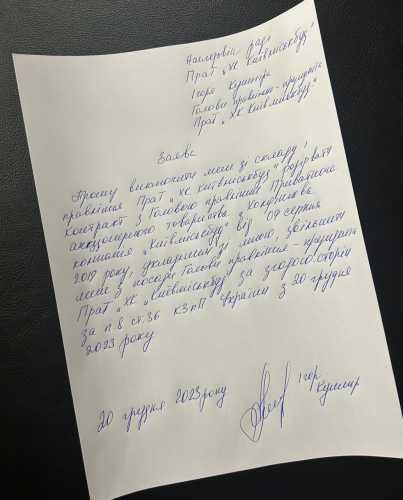 Наглядовій раді
ПрАТ „ХК Київміськбуд"
Ігоря Кушніра
Голови правління-президента
ПрАТ „ХК Київміськбуд"
Заява
Прошу виключити мене зі складу
правління ПрАТ „ХК Київміськбуд", розірвати
контракт з Головою правління Приватного
акціонерного товариства „Холдингова
компанія „Київміськбуд" від 09 серпня
2019 року, укладений зі мною, звільнити
мене з посади Голови правління-президента
ПрАТ „ХК „Київміськбуд" за згодою сторін
за п.8 ст.36 КЗпП України з 20 грудня
2023 року
20 грудня 2023 року
Ігор
Кушнір